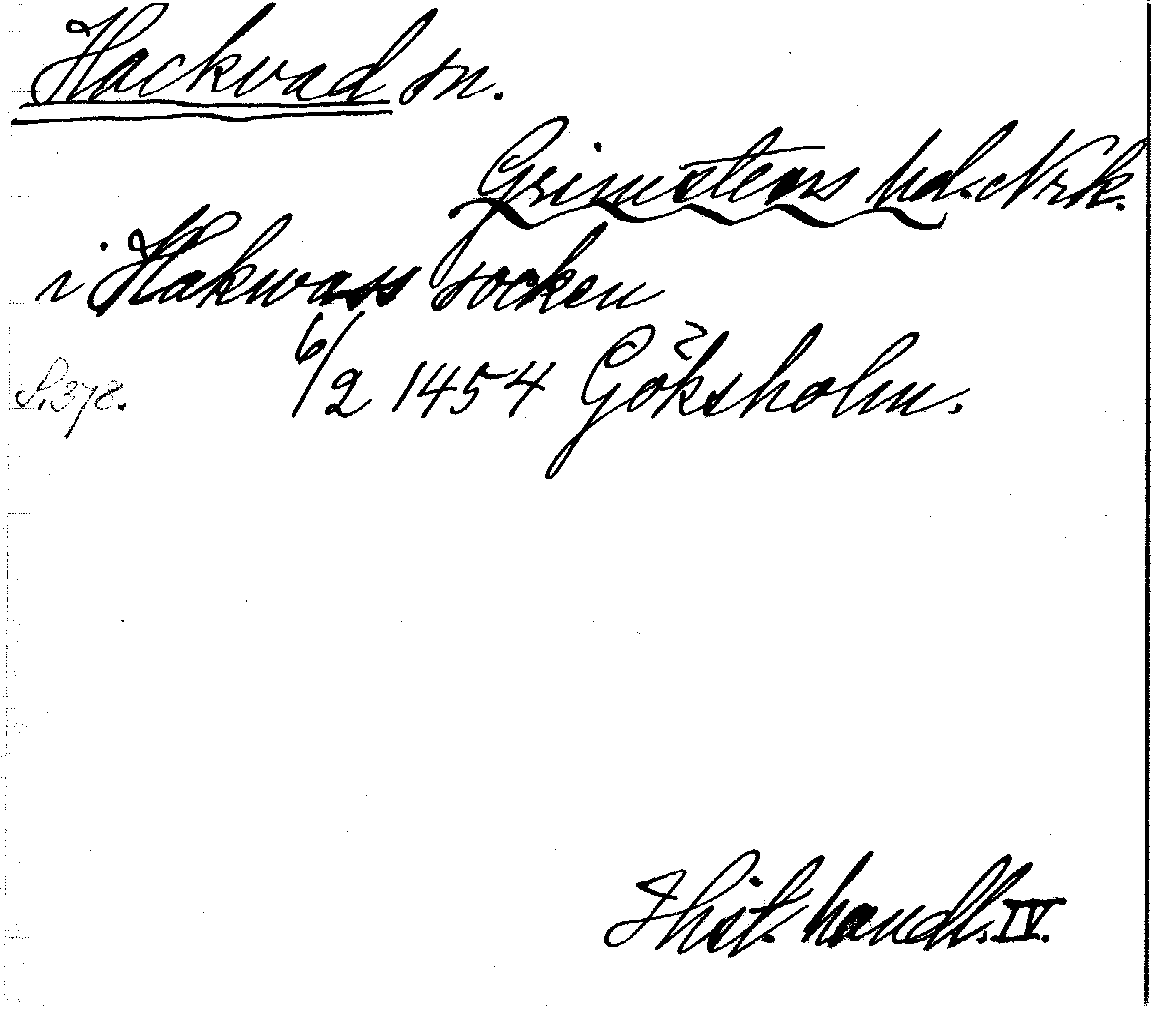 Hackvad sn.
Grimstens hd. Nrk.
i Hakwass socken
S. 378. 6/2 1454 Göksholm.
Hist. handl. IV.